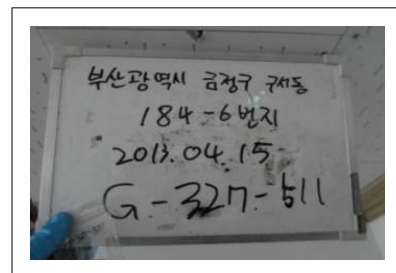 부산광역시 금정구 구서동
184-6번지
2013.04.15
G-327-511